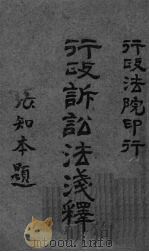 行政法院印行
行政訴訟法淺釋
張知本題